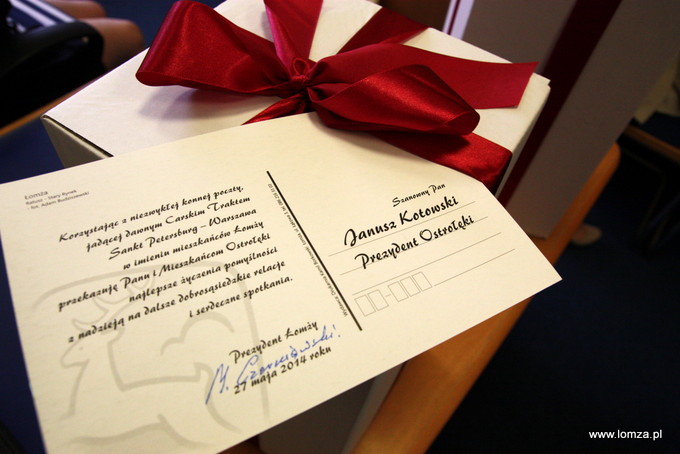 ŁOMŻA
Ratusz - Stary Rynek
fot. Adam Budziszewski
Korzystając z niezwykłej konnej poczty,
jadącej dawnym Carskim Traktem
Sankt Petersburg – Warszawa
w imieniu mieszkańców Łomży
przekazuję Panu i Mieszkańcom Ostrołęki
najlepsze życzenia pomyślności
z nadzieją na dalsze dobrosąsiedzkie relacje
i serdeczne spotkania.
Prezydent Łomży
27 maja 2014 roku
Szanowny Pan
Janusz Kotowski
Prezydent Ostrołęki
www.lomza.pl